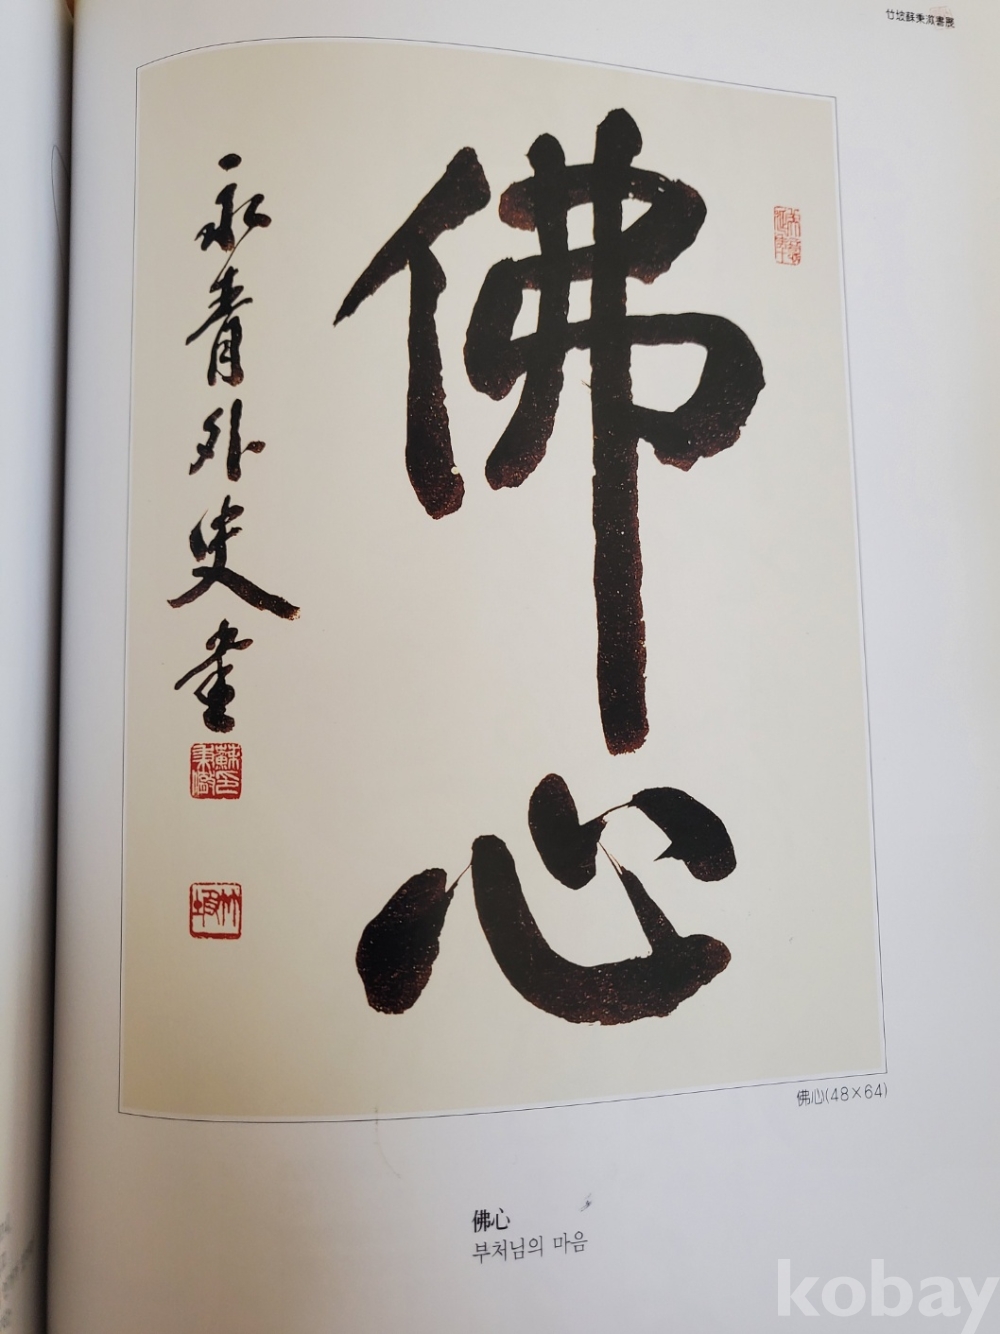 竹坡蘇秉漩書展
佛心
永青外史書
佛心(48×64)
佛心
부처님의 마음
kobay